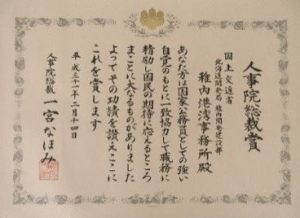 人事院総裁賞
国土交通省
北海道開発局 稚内開発建設部
稚内港湾事務所殿
あなた方は国家公務員としての強い
自覚のもとに一致協力して職務に
精励し国民の期待に応えるところ
まことに大なるものがありました
よってその功績を讃えここに
これを賞します
平成三十一年二月十四日
人事院総裁 一宮なほみ